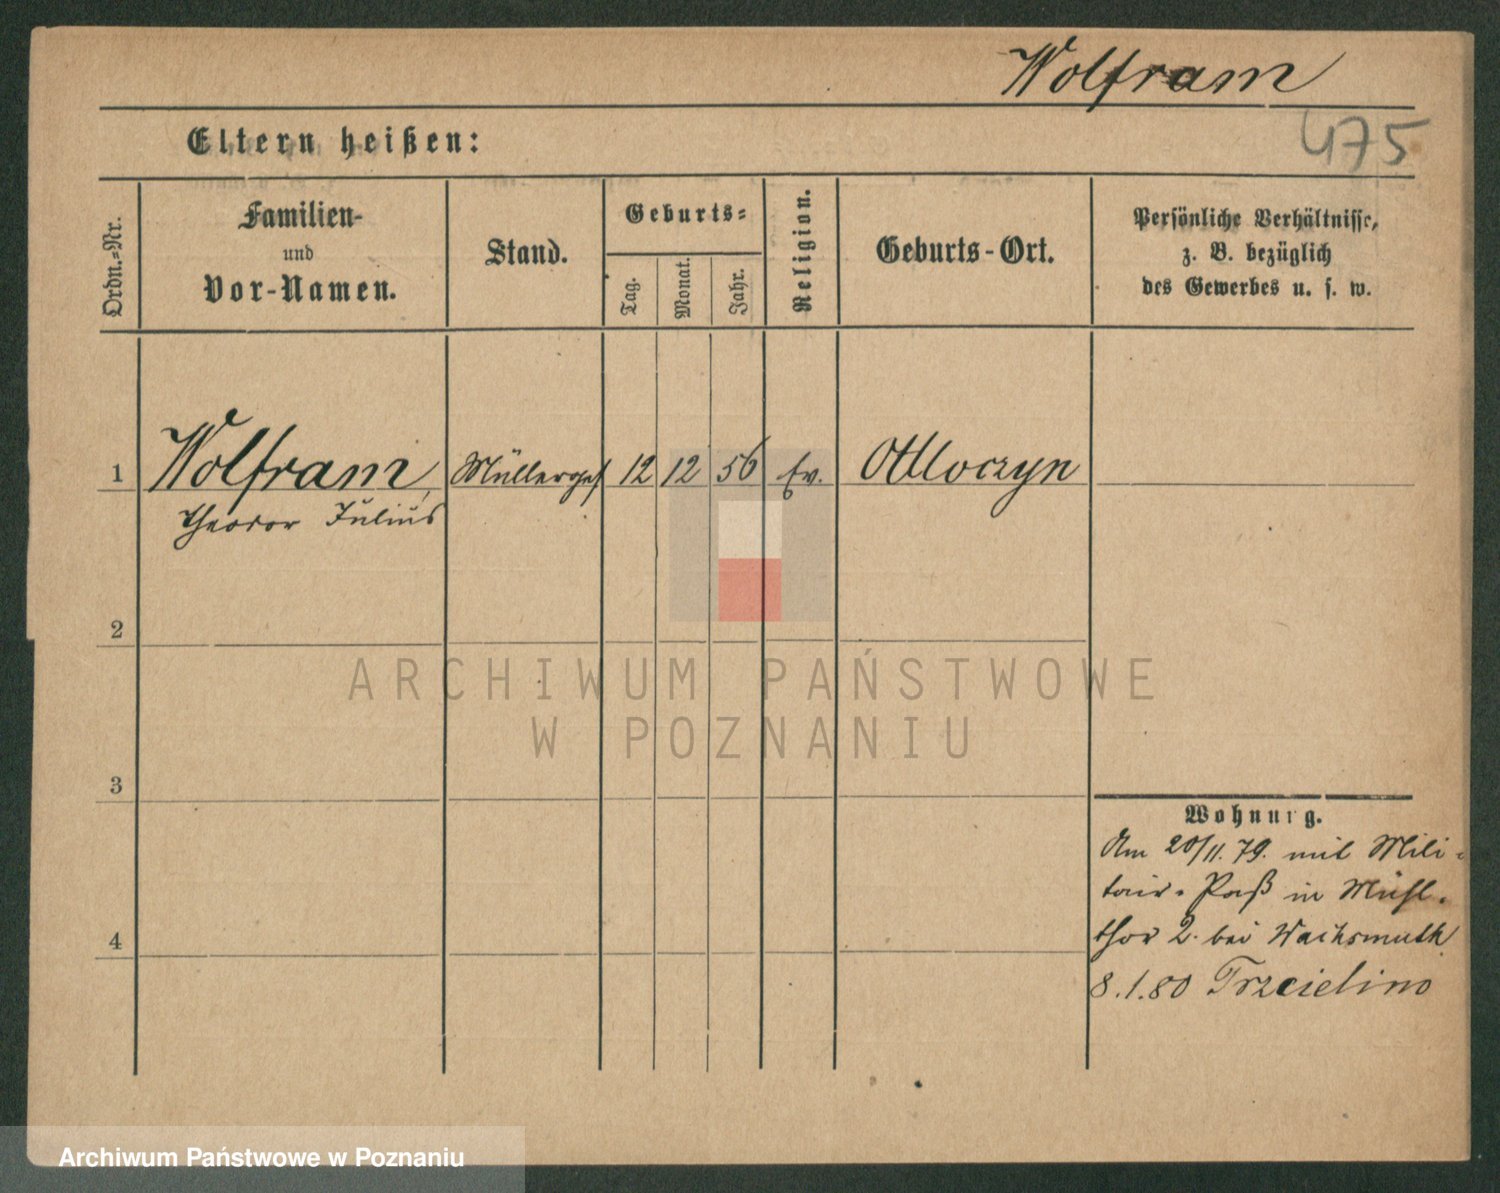 Wolfram
Eltern heißen:
475
Ordn.-Nr.
Familien-
und
Vor-Namen.
Stand.
Geburts-
Tag.
Monat.
Jahr.
Religion.
Geburts-Ort.
Persönliche Verhältnisse,
z. B. bezüglich
des Gewerbes u. s. w.
1 Wolfram, Müllerges 12 12 56 Ev. Ottloczyn
Theodor Julius
2
3
4
Wohnung.
Am 20/11. 79. mit Mili-
tair-Paß in Mühl-
thor 2. bei Wachsmuth
8.1.80 Trzcielino
ARCHIWUM PAŃSTWOWE
W POZNANIU
Archiwum Państwowe w Poznaniu